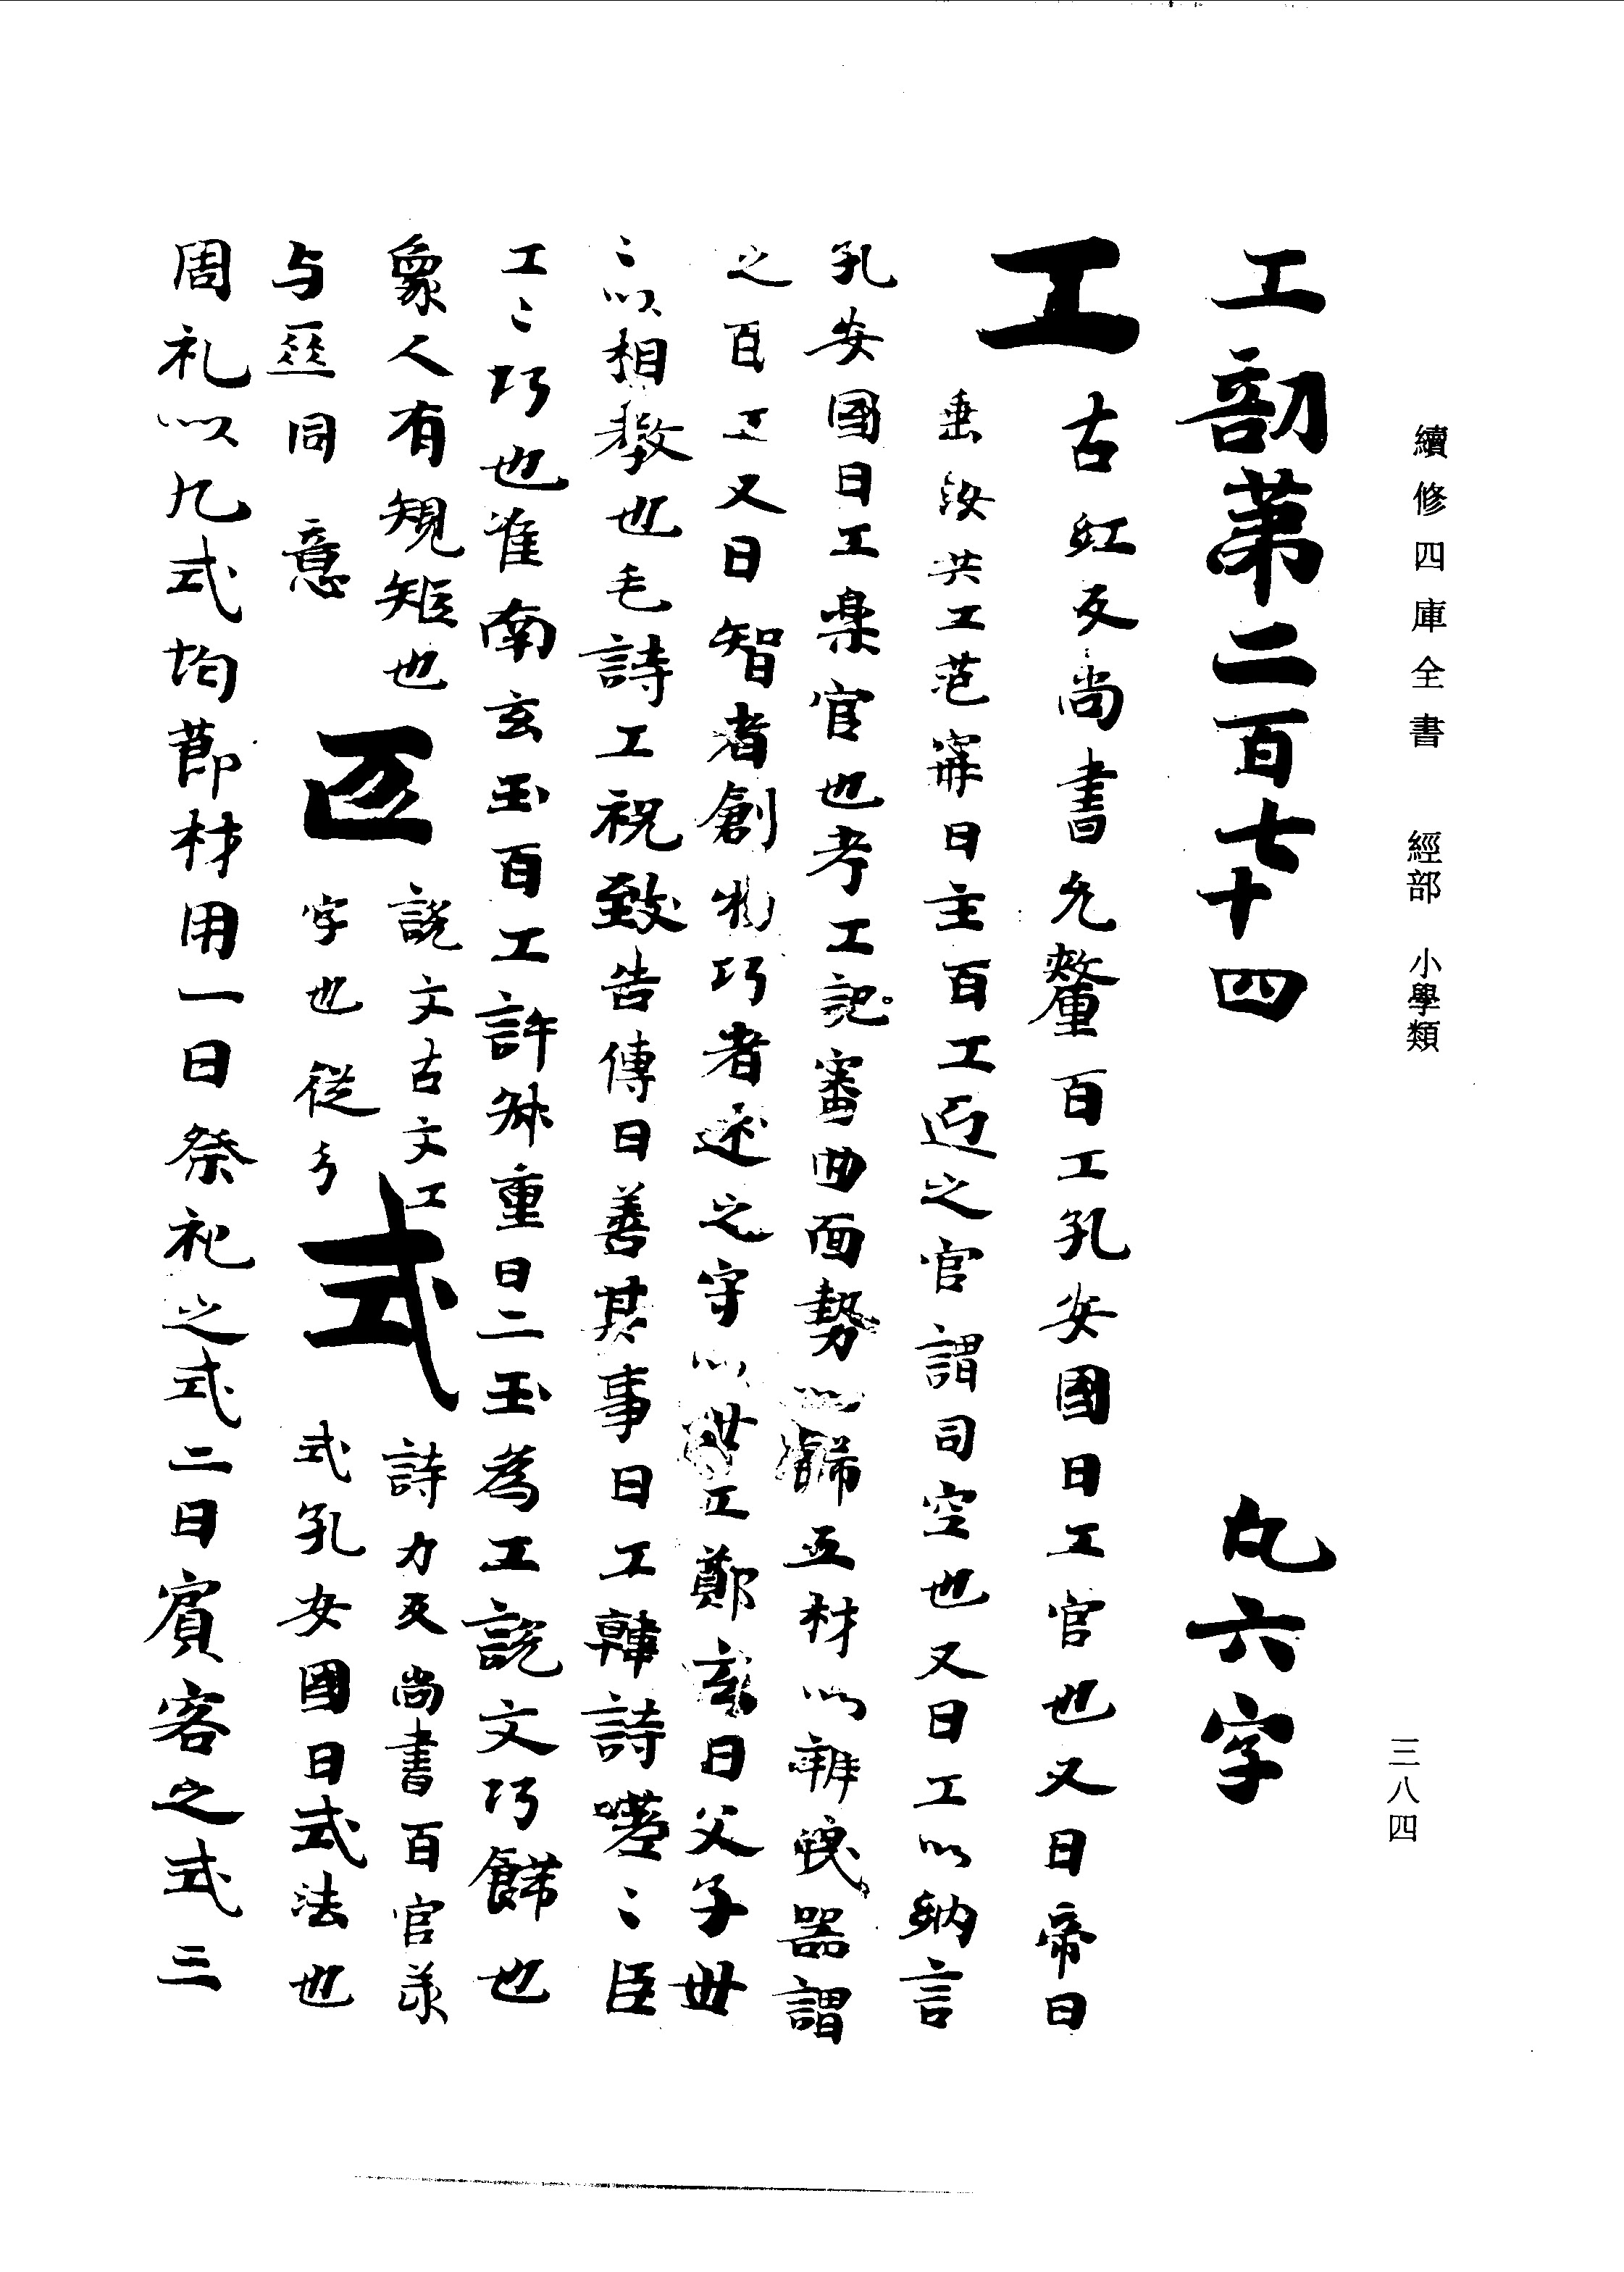 續修四庫全書　經部　小學類
三八四
工部第二百七十四　凡六字
工　古紅反尚書允釐百工孔安國曰工官也又曰帝曰
垂汝共工范寗曰主百工近之官謂司空也又曰工以納言
孔安國曰工樂官也考工記審曲面勢以飾五材以辨民器謂
之百工又曰智者創物巧者述之守以世工鄭玄曰父子世
〻以相教也毛詩工祝致告傳曰善其事曰工韓詩嗟〻臣
工〻巧也淮南玄玉百工許叔重曰二玉為工說文巧餝也
象人有規矩也　𢒄　說文古文工
与巫同意　字也從彡　式　詩力反尚書百官羕
式孔安國曰式法也
周礼以九式均節材用一曰祭祀之式二曰賓客之式三